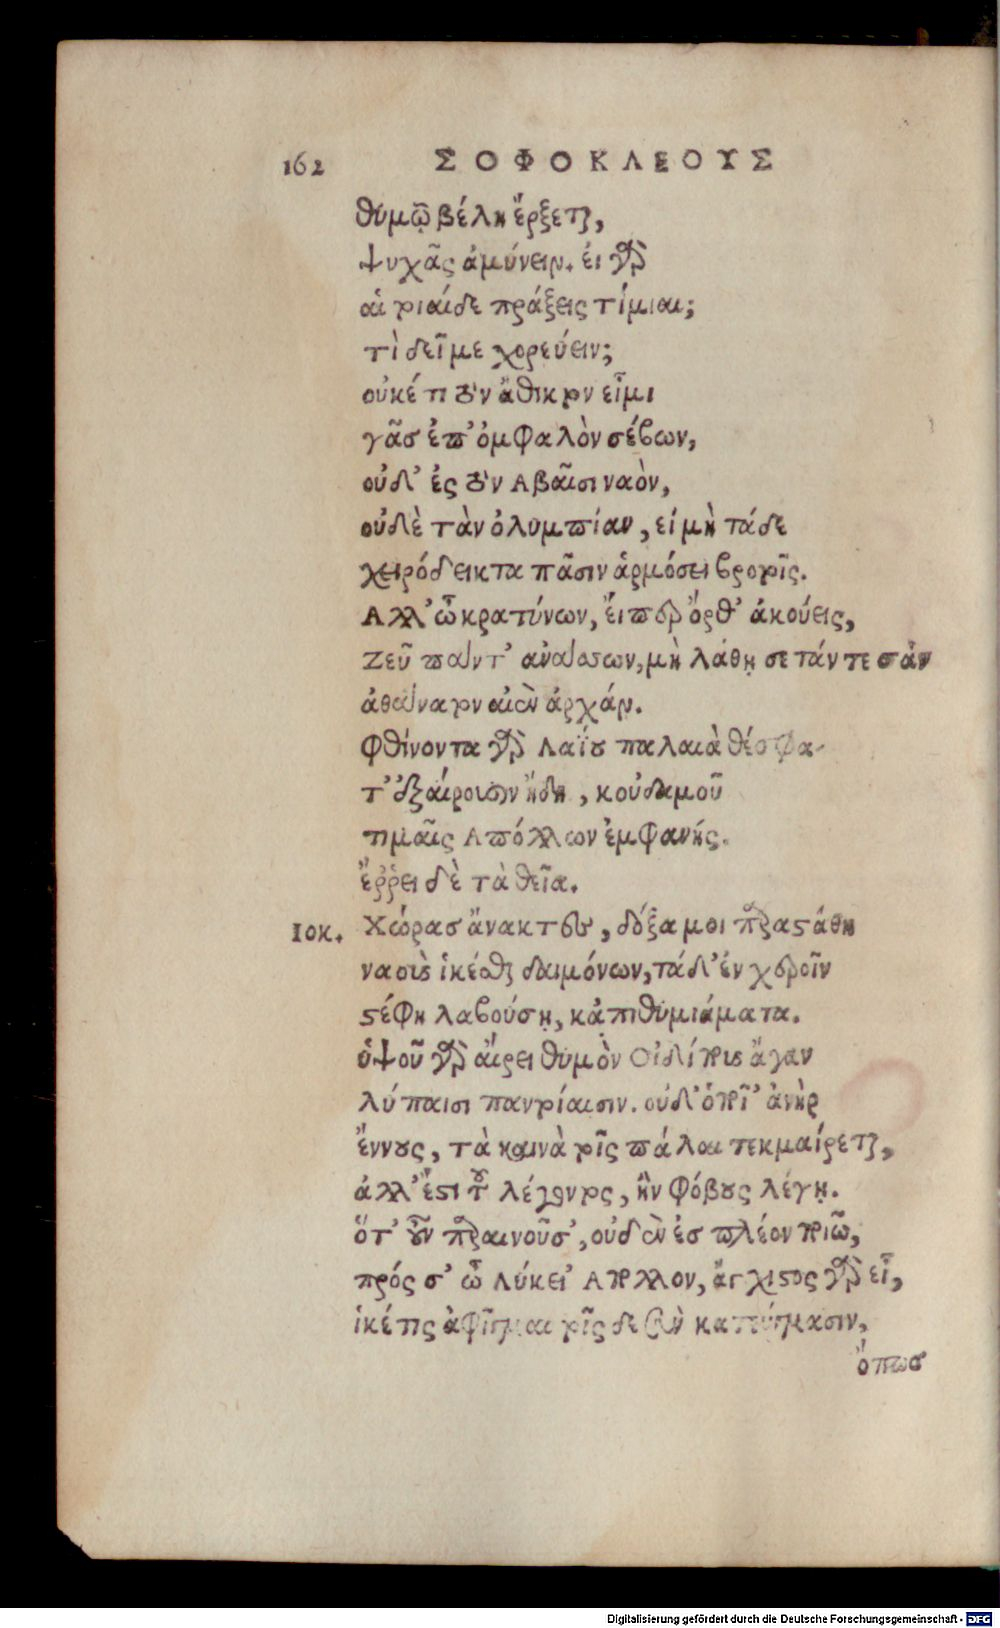 162 ΣΟΦΟΚΛΕΟΥΣ
θυμῷ βέλη ἔρξεται,
ψυχᾶς ἀμύνειν. εἰ γὰρ
αἱ τοιαίδε πράξεις τίμιαι;
τὶ δεῖ με χορεύειν;
οὐκέτι τὸν ἄθικτον εἶμι
γᾶσ ἐπ' ὀμφαλὸν σέβων,
οὐδ' ἐς τὸν Αβαῖσι ναὸν,
οὐδὲ τὰν ὀλυμπίαν, εἰ μὴ τάδε
χειρόδεικτα πᾶσιν ἁρμόσει βροτοῖς.
Αλλ' ὦ κρατύνων, εἴπερ ὄρθ' ἀκούεις,
Ζεῦ πάντ' ἀνάσσων, μὴ λάθῃ σε τάν τε σὰν
ἀθάνατον αἰὲν ἀρχάν.
Φθίνοντα γὰρ Λαΐου παλαιὰ θέσφα-
τ' ἐξαίρουσιν ἤδη, κοὐδαμοῦ
τιμαῖς Απόλλων ἐμφανής.
ἔρρει δὲ τὰ θεῖα.
Ιοκ. Χώρασ ἄνακτες, δόξα μοι παρεστάθη
ναοὺς ἱκέσθαι δαιμόνων, τάδ' ἐν χεροῖν
στέφη λαβούσῃ, κἀπιθυμιάματα.
ὑψοῦ γὰρ αἴρει θυμὸν Οἰδίπους ἄγαν
λύπαισι παντοίαισιν. οὐδ' ὁποῖ' ἀνὴρ
ἔννους, τὰ καινὰ τοῖς πάλαι τεκμαίρεται,
ἀλλ' ἔστι τοῦ λέγοντος, ἢν φόβους λέγῃ.
ὅτ' οὖν παραινοῦσ', οὐδὲν ἐσ πλέον ποιῶ,
πρός σ' ὦ Λύκει' Απολλον, ἄγχιστος γὰρ εἶ,
ἱκέτις ἀφῖγμαι τοῖς δε σὺν κατεύγμασιν,
ὅπωσ
Digitalisierung gefördert durch die Deutsche Forschungsgemeinschaft - DFG